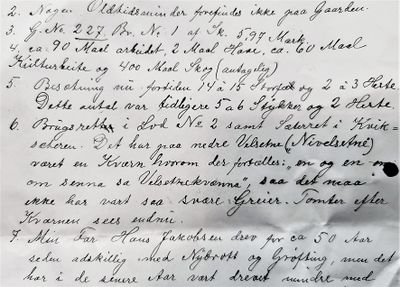 2. Nogen Oldtidsminder forefindes ikke paa Gaarden.
3. G. No. 227. Br. No. 1 af Sk. 5,97 Mark.
4. ca. 90 Maal arbeidet, 2 Maal Have, ca. 60 Maal
Kulturbeite og 400 Maal Skog (antagelig)
5. Besætning nu fortiden 14 à 15 Storfæ og 2 à 3 Heste.
Dette antal var tidligere 5 a 6 Stykker og 2 Heste.
6. Brugsret i Lod No 2 samt Sæterret i Kvik-
sæteren. Det har paa nedre Velsetne (Nivelsetne)
været en Kværn hvorom der fortælles: "en og en on
om senna sa Velsetnekvenna", saa det maa
ikke har vært saa svære Greier. Tomter efter
Kværnen sees endnu.
7. Min Far Hans Jakobsen drev for ca 50 Aar
siden adskillig med Nybrott og Grøfting, men det
har i de senere Aar vært drevet mindre med